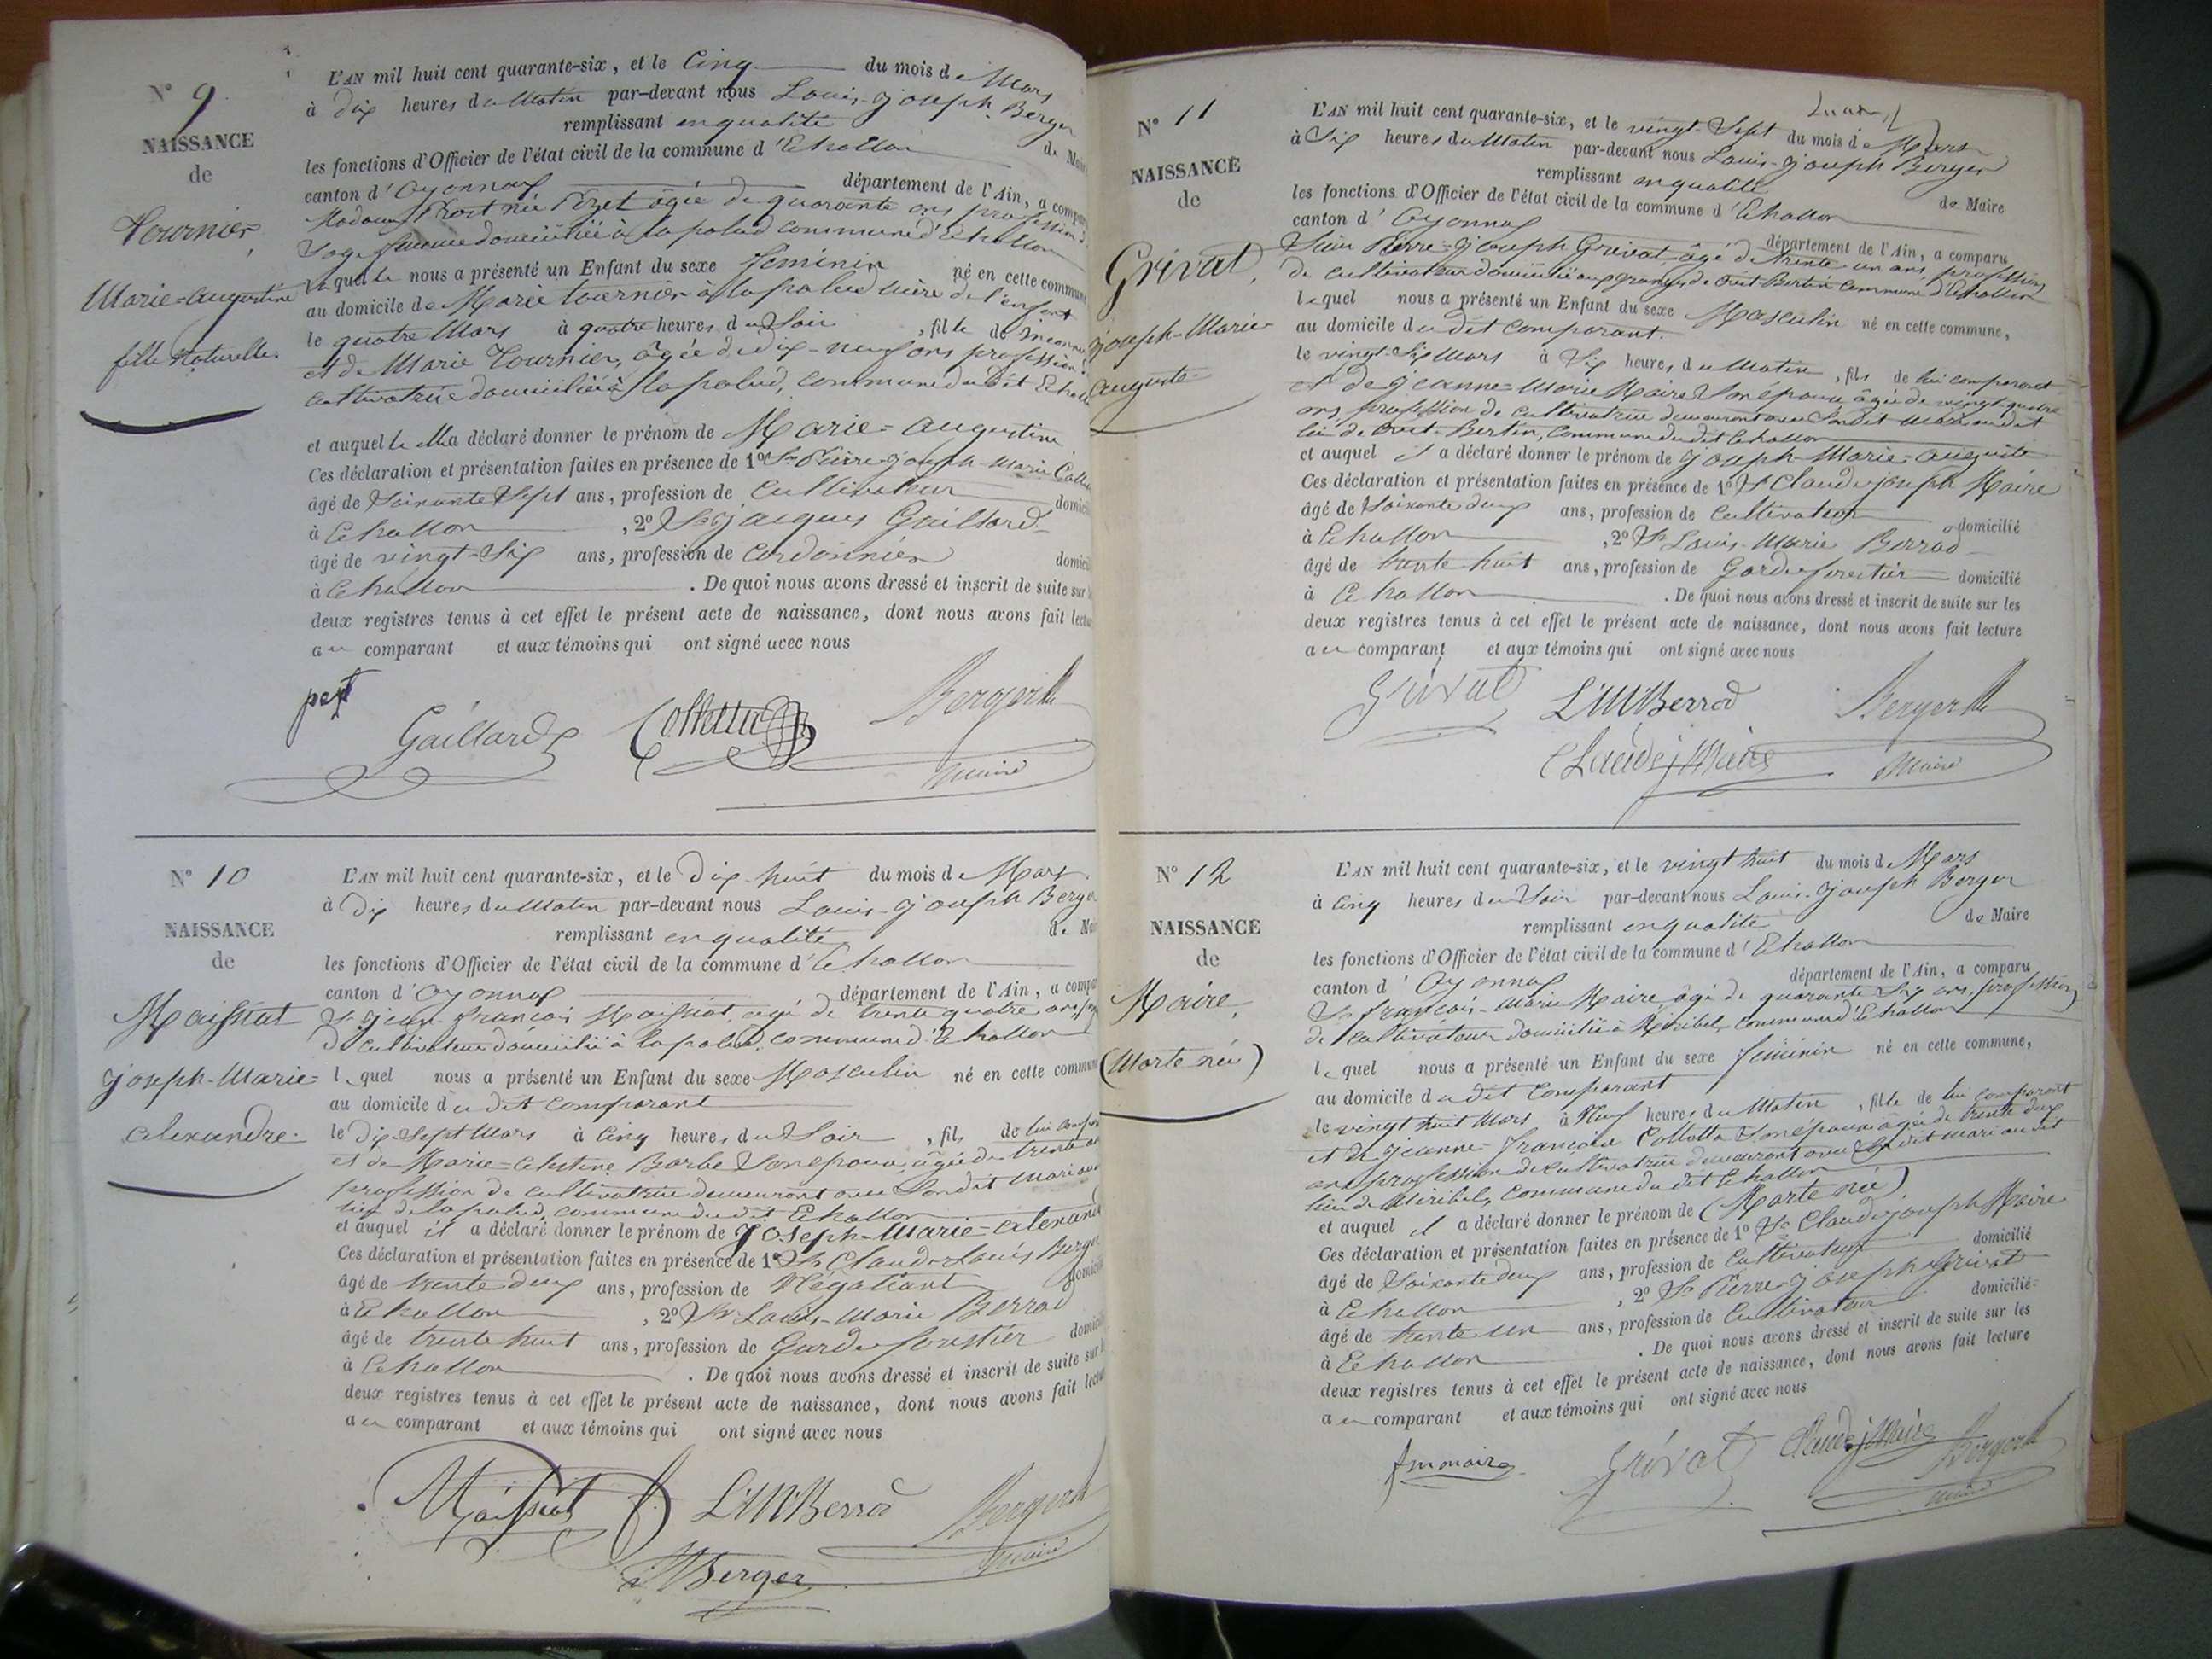 N° 9
NAISSANCE
de
Tournier,
Marie=augustine
fille naturelle.
L'AN mil huit cent quarante-six, et le Cinq du mois de Mars
à dix heures du Matin par-devant nous Louis-joseph Berger
remplissant en qualité de
les fonctions d'Officier de l'état civil de la commune d'Echallon
canton d'Oyonnax département de l'Ain, a
Madame née âgée de quarante ans profession de
Sage femme domiciliée à la palud commune d'Echallon
laquelle nous a présenté un Enfant du sexe féminin né en cette
au domicile de Marie tournier à la palud mère de l'enfant
le quatre Mars à quatre heures du Soir, fille de
et de Marie Tournier, âgée de dix-neuf ans profession
cultivatrice domiciliée à la palud, commune du dit
et auquel elle a déclaré donner le prénom de Marie=augustine
Ces déclaration et présentation faites en présence de 1° Sr Pierre-joseph-marie
âgé de Soixante Sept ans, profession de Cultivateur
à Echallon, 2° Sr jacques Gaillard
âgé de vingt-Six ans, profession de Cordonnier
à Echallon. De quoi nous avons dressé et inscrit de suite sur
deux registres tenus à cet effet le présent acte de naissance, dont nous avons fait
au comparant et aux témoins qui ont signé avec nous
Gaillard Bergerlh
maire
N° 10
NAISSANCE
de
Maissiat
joseph-Marie=
alexandre.
L'AN mil huit cent quarante-six, et le Dix-huit du mois de Mars
à Dix heures du Matin par-devant nous Louis-joseph
remplissant en qualité de
les fonctions d'Officier de l'état civil de la commune d'Echallon
canton d'Oyonnax département de l'Ain, a
Sr jean-françois Maissiat, âgé de trente quatre ans,
de Cultivateur domicilié à la palud, commune d'Echallon
lequel nous a présenté un Enfant du sexe Masculin né en cette
au domicile du dit comparant
le Dix-Sept Mars à Cinq heures du Soir, fils de lui
et de Marie=Célestine Barbe Son épouse, âgée de trente
profession de cultivatrice demeurant avec Son dit Mari
lieu de la palud, commune du dit Echallon
et auquel il a déclaré donner le prénom de Joseph-Marie=
Ces déclaration et présentation faites en présence de 1° Sr Claude-Louis
âgé de trente deux ans, profession de Négotiant
à Echallon, 2° Sr Louis-Marie Berrod
âgé de trente huit ans, profession de Garde forestier
à Echallon. De quoi nous avons dressé et inscrit de suite sur
deux registres tenus à cet effet le présent acte de naissance, dont nous avons fait
au comparant et aux témoins qui ont signé avec nous
Maissiat LMBerrod Bergerlh
Berger maire
N° 11
NAISSANCE
de
Grivat,
joseph-Marie=
auguste.
L'AN mil huit cent quarante-six, et le vingt-Sept du mois de Mars
à Six heures du Matin par-devant nous Louis-joseph Berger
remplissant en qualité de Maire
les fonctions d'Officier de l'état civil de la commune d'Echallon
canton d'Oyonnax département de l'Ain, a comparu
Sieur Pierre-joseph Grivat âgé de trente un ans, profession
de cultivateur domicilié aux granges de Crêt-Bertin commune d'Echallon
lequel nous a présenté un Enfant du sexe Masculin né en cette commune,
au domicile du dit comparant.
le vingt-Six Mars à Six heures du Matin, fils de lui comparant
et de jeanne=Marie Maire Son épouse âgée de vingt-quatre
ans, profession de cultivatrice demeurant avec Son dit Mari au dit
lieu de Crêt-Bertin, commune du dit Echallon
et auquel il a déclaré donner le prénom de joseph-Marie=auguste
Ces déclaration et présentation faites en présence de 1° Sr Claude-joseph Maire
âgé de Soixante deux ans, profession de Cultivateur domicilié
à Echallon, 2° Sr Louis-Marie Berrod
âgé de trente-huit ans, profession de Garde forestier domicilié
à Echallon. De quoi nous avons dressé et inscrit de suite sur les
deux registres tenus à cet effet le présent acte de naissance, dont nous avons fait lecture
au comparant et aux témoins qui ont signé avec nous
Grivat LMBerrod Bergerlh
Claude j Maire maire
N° 12
NAISSANCE
de
Maire,
(Morte née)
L'AN mil huit cent quarante-six, et le vingt huit du mois de Mars
à Cinq heures du Soir par-devant nous Louis-joseph Berger
remplissant en qualité de Maire
les fonctions d'Officier de l'état civil de la commune d'Echallon
canton d'Oyonnax département de l'Ain, a comparu
Sr françois-Marie Maire, âgé de quarante Six ans, profession
de cultivateur domicilié à Miribel, commune d'Echallon
lequel nous a présenté un Enfant du sexe féminin né en cette commune,
au domicile du dit comparant
le vingt huit Mars à Neuf heures du Matin, fille de lui comparant
et de jeanne-françoise Colletta Son épouse âgée de trente deux
ans profession de cultivatrice demeurant avec Son dit mari au dit
lieu de Miribel, commune du dit Echallon
et auquel il a déclaré donner le prénom de (Morte née)
Ces déclaration et présentation faites en présence de 1° Sr Claude-joseph Maire
âgé de Soixante deux ans, profession de Cultivateur domicilié
à Echallon, 2° Sr Pierre-joseph Grivat
âgé de trente-un ans, profession de Cultivateur domicilié
à Echallon. De quoi nous avons dressé et inscrit de suite sur les
deux registres tenus à cet effet le présent acte de naissance, dont nous avons fait lecture
au comparant et aux témoins qui ont signé avec nous
fmmaire Grivat Claude j Maire Bergerlh
maire